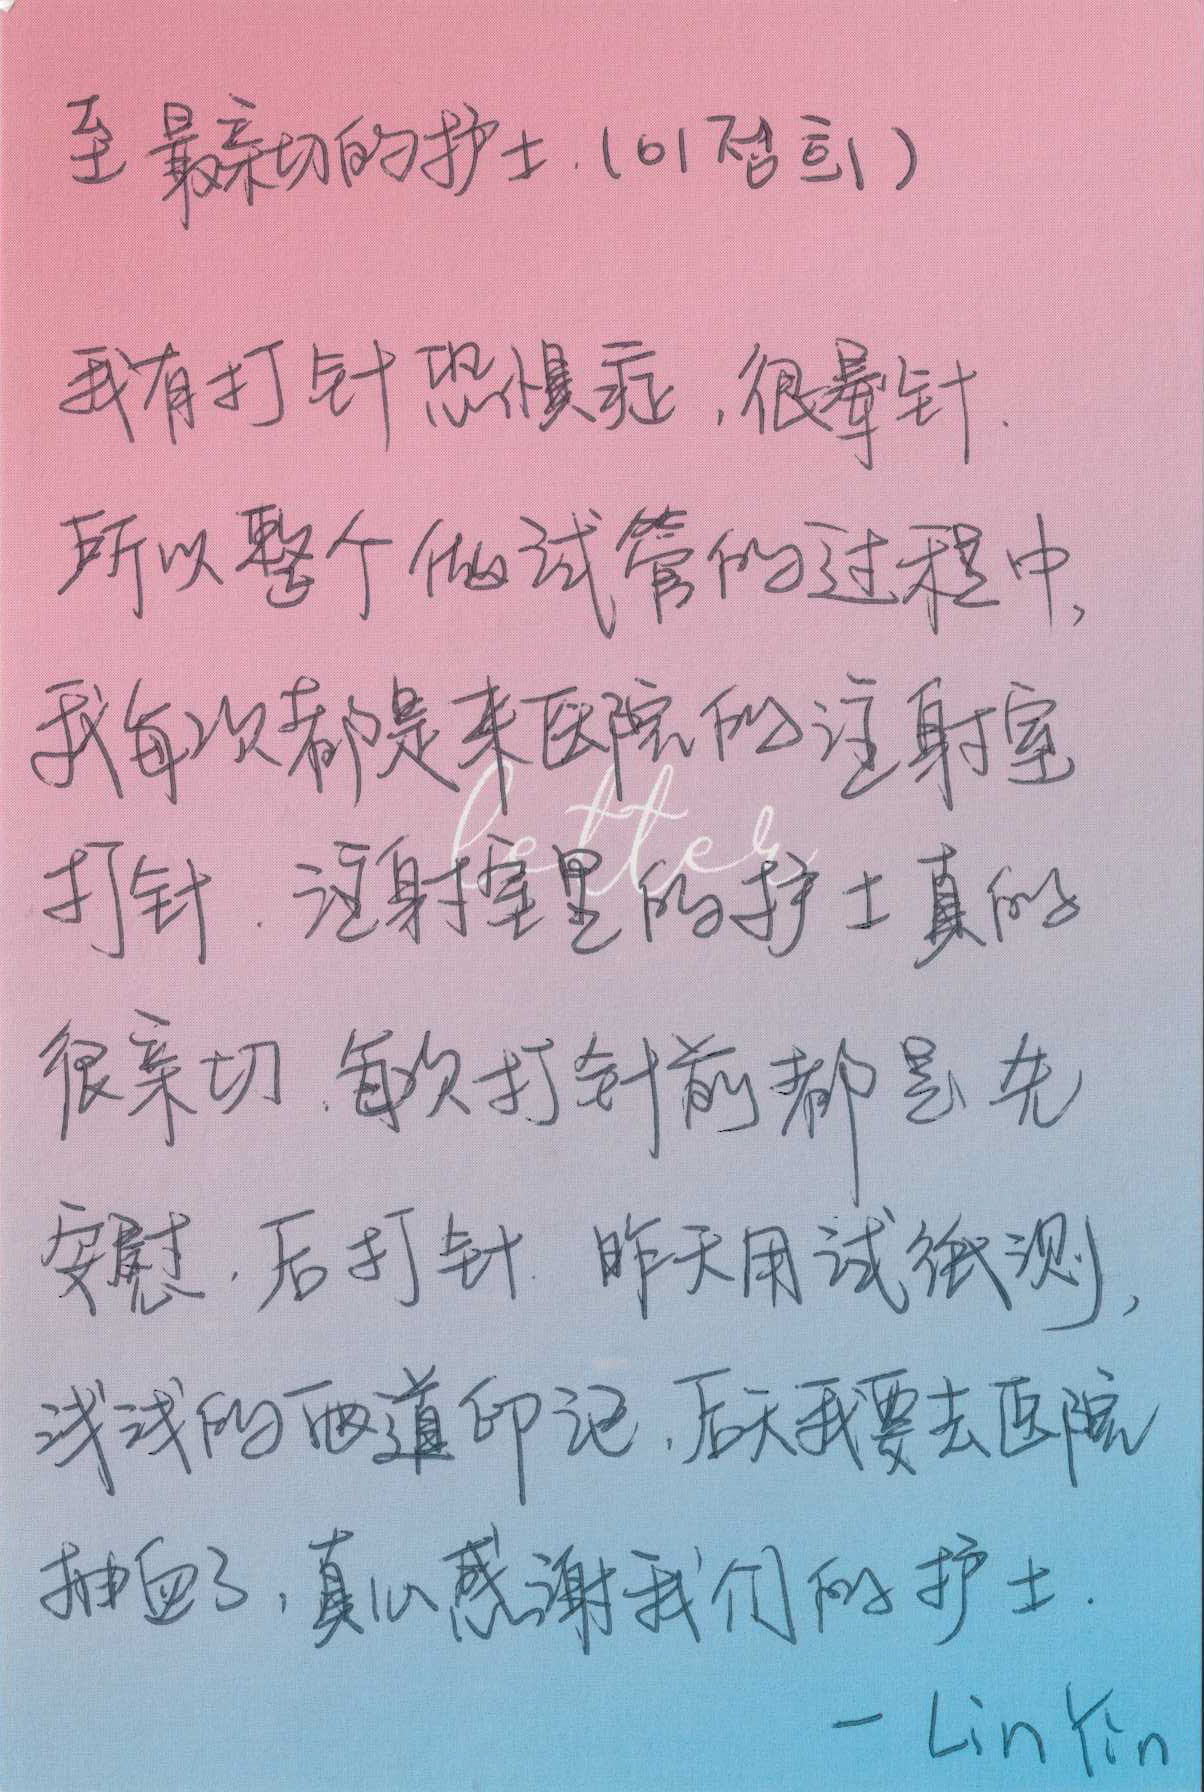 至最亲切的护士.(이점희)
我有打针恐惧症,很晕针.
所以整个做试管的过程中,
我每次都是来医院的注射室
letter
打针.注射室里的护士真的
很亲切.每次打针前都是先
安慰.后打针.昨天用试纸测,
浅浅的两道印记.后天我要去医院
抽血了,真心感谢我们的护士.
- Lin Yin